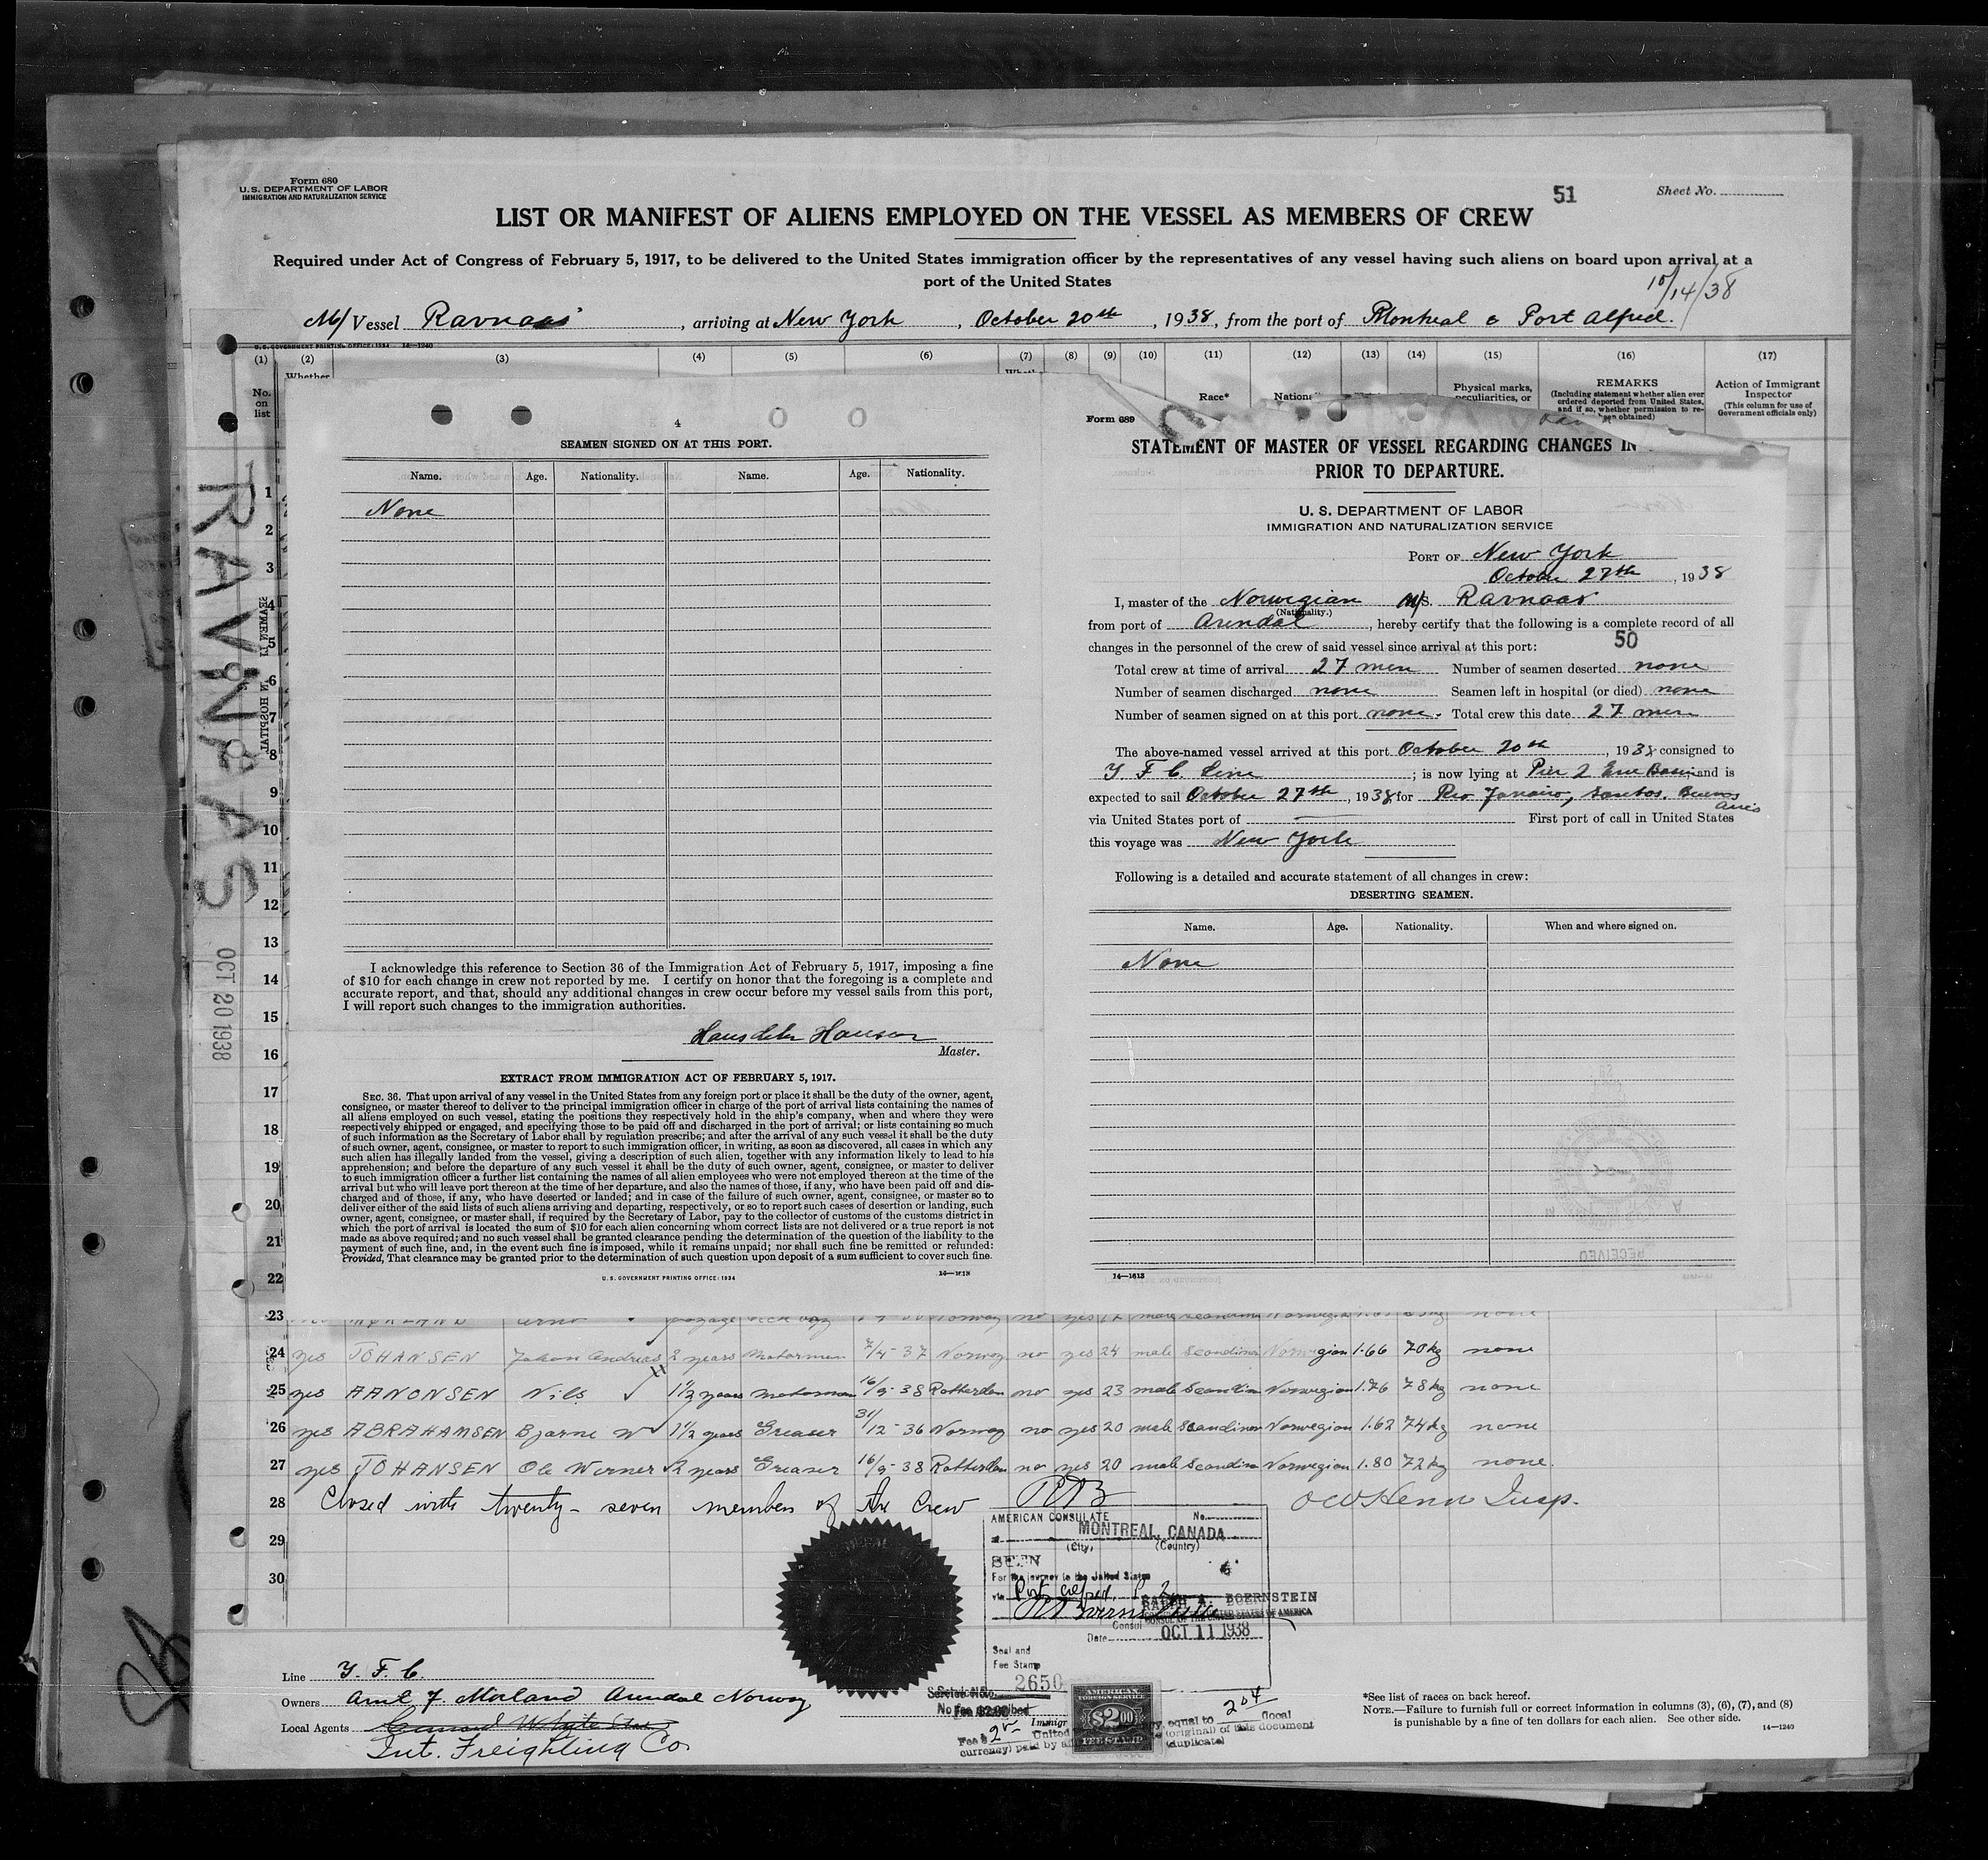 Form 680
U. S. DEPARTMENT OF LABOR
IMMIGRATION AND NATURALIZATION SERVICE
51
Sheet No.
LIST OR MANIFEST OF ALIENS EMPLOYED ON THE VESSEL AS MEMBERS OF CREW
Required under Act of Congress of February 5, 1917, to be delivered to the United States immigration officer by the representatives of any vessel having such aliens on board upon arrival at a
port of the United States
10/14/38
M/ Vessel Ravnaas, arriving at New York, October 20th, 1938, from the port of Montreal & Port Alfred.
U. S. GOVERNMENT PRINTING OFFICE: 1934 14—1240
(1) (2) (3) (4) (5) (6) (7) (8) (9) (10) (11) (12) (13) (14) (15) (16) (17)
Whether
No. on list
Race*
Physical marks, peculiarities, or
REMARKS
(Including statement whether alien ever ordered deported from United States, and if so, whether permission to re-
Action of Immigrant Inspector
(This column for use of Government officials only)
RAVNAAS
OCT 20 1938
4
SEAMEN SIGNED ON AT THIS PORT.
Name. Age. Nationality. Name. Age. Nationality.
None
I acknowledge this reference to Section 36 of the Immigration Act of February 5, 1917, imposing a fine
of $10 for each change in crew not reported by me. I certify on honor that the foregoing is a complete and
accurate report, and that, should any additional changes in crew occur before my vessel sails from this port,
I will report such changes to the immigration authorities.
Hansen
Master.
EXTRACT FROM IMMIGRATION ACT OF FEBRUARY 5, 1917.
SEC. 36. That upon arrival of any vessel in the United States from any foreign port or place it shall be the duty of the owner, agent,
consignee, or master thereof to deliver to the principal immigration officer in charge of the port of arrival lists containing the names of
all aliens employed on such vessel, stating the positions they respectively hold in the ship's company, when and where they were
respectively shipped or engaged, and specifying those to be paid off and discharged in the port of arrival; or lists containing so much
of such information as the Secretary of Labor shall by regulation prescribe; and after the arrival of any such vessel it shall be the duty
of such owner, agent, consignee, or master to report to such immigration officer, in writing, as soon as discovered, all cases in which any
such alien has illegally landed from the vessel, giving a description of such alien, together with any information likely to lead to his
apprehension; and before the departure of any such vessel it shall be the duty of such owner, agent, consignee, or master to deliver
to such immigration officer a further list containing the names of all alien employees who were not employed thereon at the time of the
arrival but who will leave port thereon at the time of her departure, and also the names of those, if any, who have been paid off and dis-
charged and of those, if any, who have deserted or landed; and in case of the failure of such owner, agent, consignee, or master so to
deliver either of the said lists of such aliens arriving and departing, respectively, or so to report such cases of desertion or landing, such
owner, agent, consignee, or master shall, if required by the Secretary of Labor, pay to the collector of customs of the customs district in
which the port of arrival is located the sum of $10 for each alien concerning whom correct lists are not delivered or a true report is not
made as above required; and no such vessel shall be granted clearance pending the determination of the question of the liability to the
payment of such fine, and, in the event such fine is imposed, while it remains unpaid; nor shall such fine be remitted or refunded:
Provided, That clearance may be granted prior to the determination of such question upon deposit of a sum sufficient to cover such fine.
U. S. GOVERNMENT PRINTING OFFICE: 1934
Form 689
STATEMENT OF MASTER OF VESSEL REGARDING CHANGES IN
PRIOR TO DEPARTURE.
U. S. DEPARTMENT OF LABOR
IMMIGRATION AND NATURALIZATION SERVICE
PORT OF New York
October 27th, 1938
I, master of the Norwegian M/S. Ravnaas
(Nationality.)
from port of Arendal, hereby certify that the following is a complete record of all
changes in the personnel of the crew of said vessel since arrival at this port:
50
Total crew at time of arrival 27 men Number of seamen deserted none
Number of seamen discharged none Seamen left in hospital (or died) none
Number of seamen signed on at this port none. Total crew this date 27 men
The above-named vessel arrived at this port October 20th, 1938 consigned to
I F C Line; is now lying at Pier 2 Erie Basin and is
expected to sail October 27th, 1938 for Rio Janairo, Santos, Buenos Aires
via United States port of — First port of call in United States
this voyage was New York
Following is a detailed and accurate statement of all changes in crew:
DESERTING SEAMEN.
Name. Age. Nationality. When and where signed on.
None
RECEIVED
14—1613
1
2
3
4
5
6
7
8
9
10
11
12
13
14
15
16
17
18
19
20
21
22
23
24 yes JOHANSEN Johan Andreas 2 years Motorman 7/4-37 Norway no yes 24 male Scandinav Norwegian 1.66 70kg none
25 yes AANONSEN Nils 1½ years Motorman 16/9-38 Rotterdam no yes 23 male Scandin Norwegian 1.76 78kg none
26 yes ABRAHAMSEN Bjarne W 1½ years Greaser 31/12-36 Norway no yes 20 male Scandinav Norwegian 1.62 74kg none
27 yes JOHANSEN Ole Werner 2 years Greaser 16/9-38 Rotterdam no yes 20 male Scandin Norwegian 1.80 72kg none.
28 Closed with twenty-seven members of the crew
29
30
RAB
Insp.
AMERICAN CONSULATE No.
MONTREAL, CANADA
(City) (Country)
SEEN
For the journey to the United States
via Port Alfred
RALPH A. BOERNSTEIN
CONSUL OF THE UNITED STATES OF AMERICA
Consul
Date OCT 11 1938
Seal and
Fee Stamp
2650
AMERICAN FOREIGN SERVICE
$2.00
FEE STAMP
Line I. F. C.
Owners Arnt J. Mørland Arendal Norway
Local Agents Cunard White Star
Int. Freighting Co.
*See list of races on back hereof.
NOTE.—Failure to furnish full or correct information in columns (3), (6), (7), and (8)
is punishable by a fine of ten dollars for each alien. See other side.
14—1240